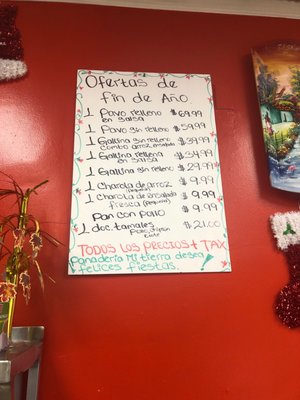 Ofertas de
fin de Año
1 Pavo relleno $69.99
en salsa
1 Pavo sin relleno $59.99
1 Gallina sin relleno $39.99
combo arroz, ensalada
1 Gallina rellena $34.99
en salsa
1 Gallina sin relleno $29.99
1 Charola de arroz $9.99
(Pequeña)
1 Charola de Ensalada $9.99
fresca (Pequeña)
Pan con pollo $9.99
1 doc. tamales $21.00
Pollo, chipilin
elote
TODOS LOS PRECIOS + TAX
Panadería Mi tierra desea
felices fiestas.!